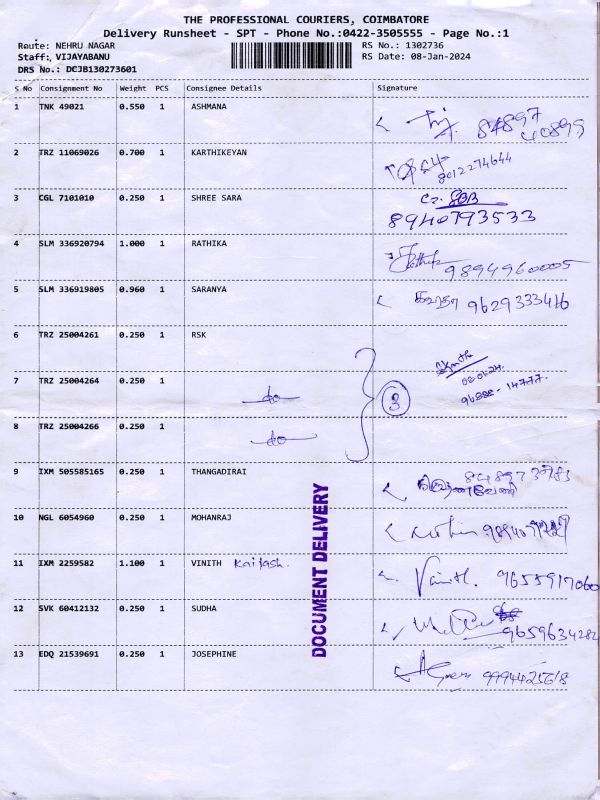 THE PROFESSIONAL COURIERS, COIMBATORE
Delivery Runsheet - SPT - Phone No.:0422-3505555 - Page No.:1
Route: NEHRU NAGAR RS No.: 1302736
Staff:, VIJAYABANU RS Date: 08-Jan-2024
DRS No.: DCJB130273601
S No Consignment No Weight PCS Consignee Details Signature
1 TNK 49021 0.550 1 ASHMANA 84897
40899
2 TRZ 11069026 0.700 1 KARTHIKEYAN 8012274644
3 CGL 7101010 0.250 1 SHREE SARA
8940793533
4 SLM 336920794 1.000 1 RATHIKA 9894960005
5 SLM 336919805 0.960 1 SARANYA 9629333416
6 TRZ 25004261 0.250 1 RSK
7 TRZ 25004264 0.250 1 do 3
8 TRZ 25004266 0.250 1 do
9 IXM 505585165 0.250 1 THANGADIRAI
10 NGL 6054960 0.250 1 MOHANRAJ
11 IXM 2259582 1.100 1 VINITH Kailash. Vinith. 9655917060
12 SVK 60412132 0.250 1 SUDHA 9659634282
13 EDQ 21539691 0.250 1 JOSEPHINE 9994425618
DOCUMENT DELIVERY